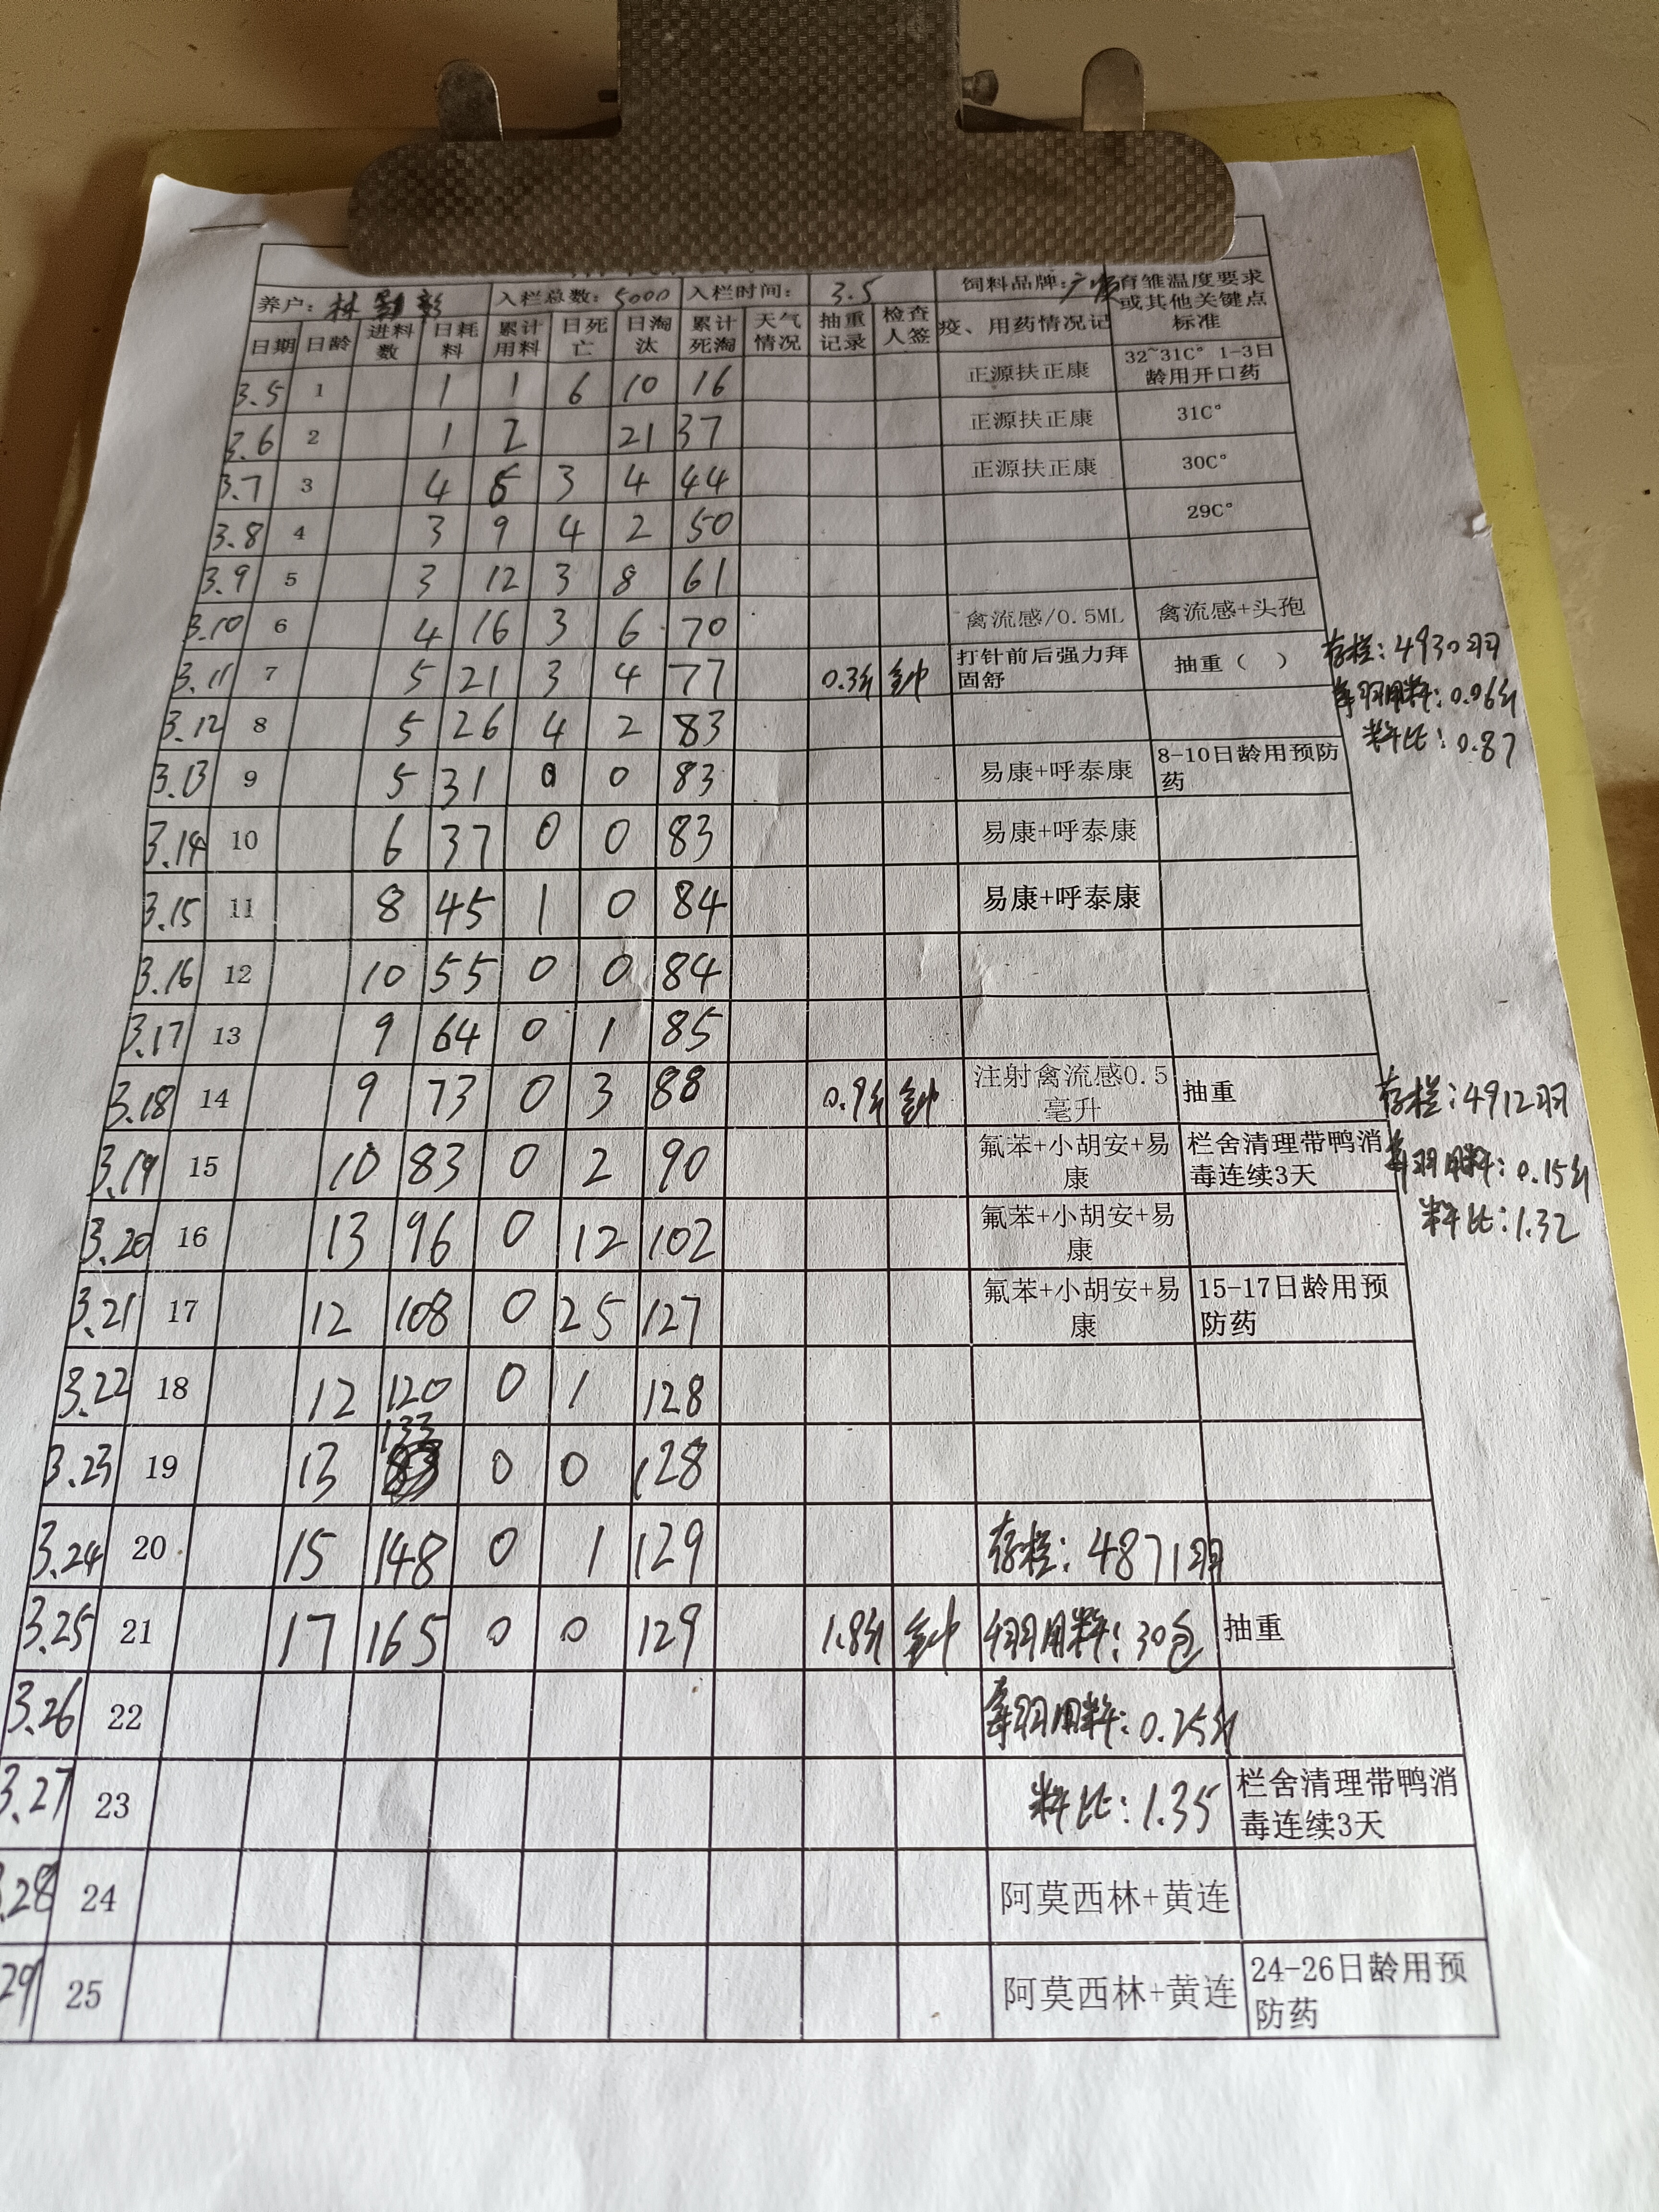 养户： 林 彭 入栏总数：5000 入栏时间： 3.5 饲料品牌：广 育雏温度要求或其他关键点标准
日期 日龄 进料数 日耗料 累计用料 日死亡 日淘汰 累计死淘 天气情况 抽重记录 检查人签 疫、用药情况记
3.5 1 1 1 6 10 16 正源扶正康 32~31C° 1-3日龄用开口药
3.6 2 1 2 21 37 正源扶正康 31C°
3.7 3 4 6 3 4 44 正源扶正康 30C°
3.8 4 3 9 4 2 50 29C°
3.9 5 3 12 3 8 61
3.10 6 4 16 3 6 70 禽流感/0.5ML 禽流感+头孢
3.11 7 5 21 3 4 77 0.3斤 打针前后强力拜固舒 抽重（ ）
存栏：4930羽
每羽用料：0.06斤
料比：0.87
3.12 8 5 26 4 2 83
3.13 9 5 31 0 0 83 易康+呼泰康 8-10日龄用预防药
3.14 10 6 37 0 0 83 易康+呼泰康
3.15 11 8 45 1 0 84 易康+呼泰康
3.16 12 10 55 0 0 84
3.17 13 9 64 0 1 85
3.18 14 9 73 0 3 88 0.9斤 注射禽流感0.5毫升 抽重
存栏：4912羽
每羽用料：0.15斤
料比：1.32
3.19 15 10 83 0 2 90 氟苯+小胡安+易康 栏舍清理带鸭消毒连续3天
3.20 16 13 96 0 12 102 氟苯+小胡安+易康
3.21 17 12 108 0 25 127 氟苯+小胡安+易康 15-17日龄用预防药
3.22 18 12 120 0 1 128
3.23 19 13 133 0 0 128
3.24 20 15 148 0 1 129 存栏：4871羽
3.25 21 17 165 0 0 129 1.8斤 羽用料：30包 抽重
3.26 22 每羽用料：0.25斤
3.27 23 料比：1.35 栏舍清理带鸭消毒连续3天
.28 24 阿莫西林+黄连
29 25 阿莫西林+黄连 24-26日龄用预防药